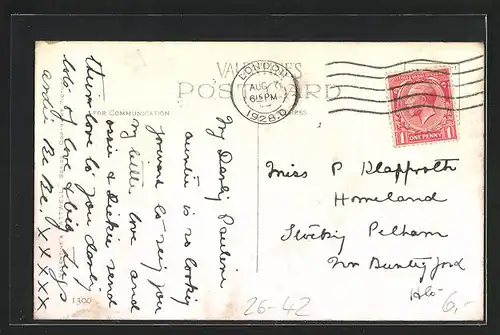 VALENTINES
POSTCARD
FOR COMMUNICATION
ADDRESS
LONDON
AUG
6 15 PM
1928.D
1
ONE PENNY
1
My Darling Pauline
auntie is so looking
forward to seeing you
my little love and
ossie & Dickie send
their love to you darling
lots of love & big hugs
and Be Be. XXXXX
Miss P Klapproth
Homeland
Stocking Pelham
Nr Buntingford
1300
26-42
6,-